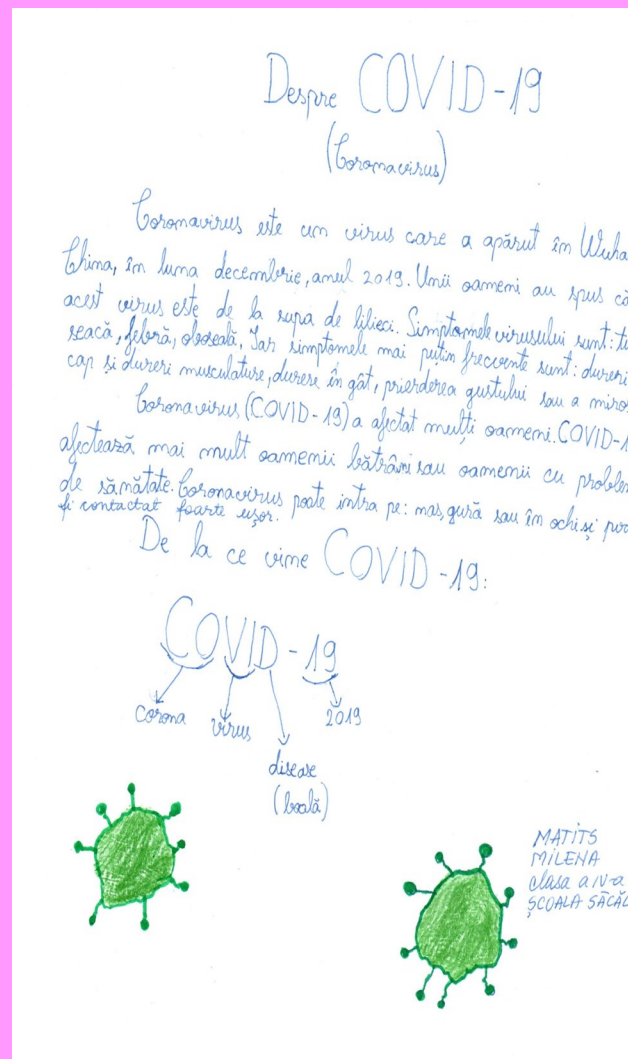 Despre COVID-19
(Coronavirus)
Coronavirus este un virus care a apărut în Wuha
China, în luna decembrie, anul 2019. Unii oameni au spus că
acest virus este de la supa de lilieci. Simptomele virusului sunt: tu
seacă, febră, oboseală. Iar simptomele mai puțin frecvente sunt: dureri
cap și dureri musculature, durere în gât, prierderea gustului sau a miros
Coronavirus (COVID-19) a afectat mulți oameni. COVID-1
afectează mai mult oamenii bătrâni sau oamenii cu problem
de sănătate. Coronavirus poate intra pe: nas, gură sau în ochi și
fi contactat foarte ușor.
De la ce vine COVID-19:
COVID-19
corona virus 2019
disease
(boală)
MATITS
MILENA
clasa a IV-a
ȘCOALA SĂCĂL